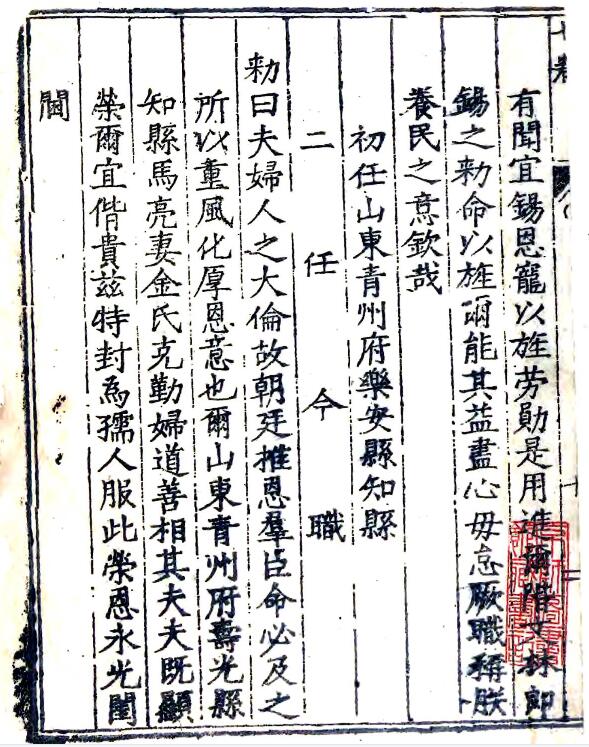 有聞宜錫恩寵以旌勞勛是用進爾階文林郎
錫之勑命以旌爾能其益盡心毋怠厥職稱朕
養民之意欽哉
初任山東青州府樂安縣知縣
二任今職
勑曰夫婦人之大倫故朝廷推恩羣臣命必及之
所以重風化厚恩意也爾山東青州府壽光縣
知縣馬亮妻金氏克勤婦道善相其夫夫既顯
榮爾宜偕貴兹特封為孺人服此榮恩永光閨
閫